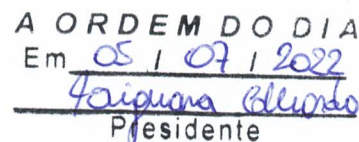 A ORDEM DO DIA
Em 05 / 07 / 2022
Presidente